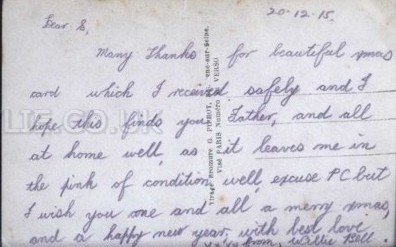 20-12-15.
Dear S,
Many Thanks for beautiful xmas
card which I received safely and I
hope this finds you, Father, and all
at home well, as it leaves me in
the pink of condition, well, excuse PC but
I wish you one and all a merry xmas,
and a happy new year, with best love
from, Willie Bell.
Visé PARIS Numéro VERSO
LIE.CO.UK